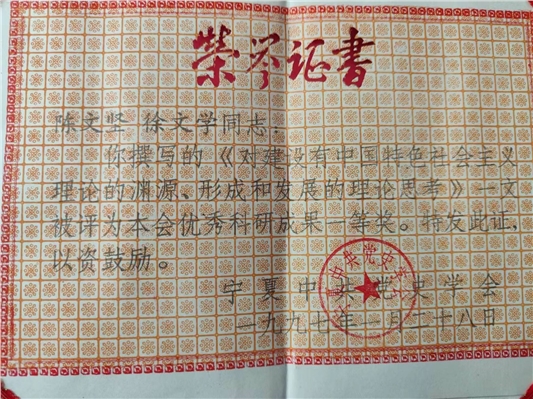 荣誉证书
陈文坚 徐文学同志：
你撰写的《对建设有中国特色社会主义
理论的渊源、形成和发展的理论思考》一文
被评为本会优秀科研成果一等奖。特发此证，
以资鼓励。
宁夏中共党史学会
一九九七年一月二十八日